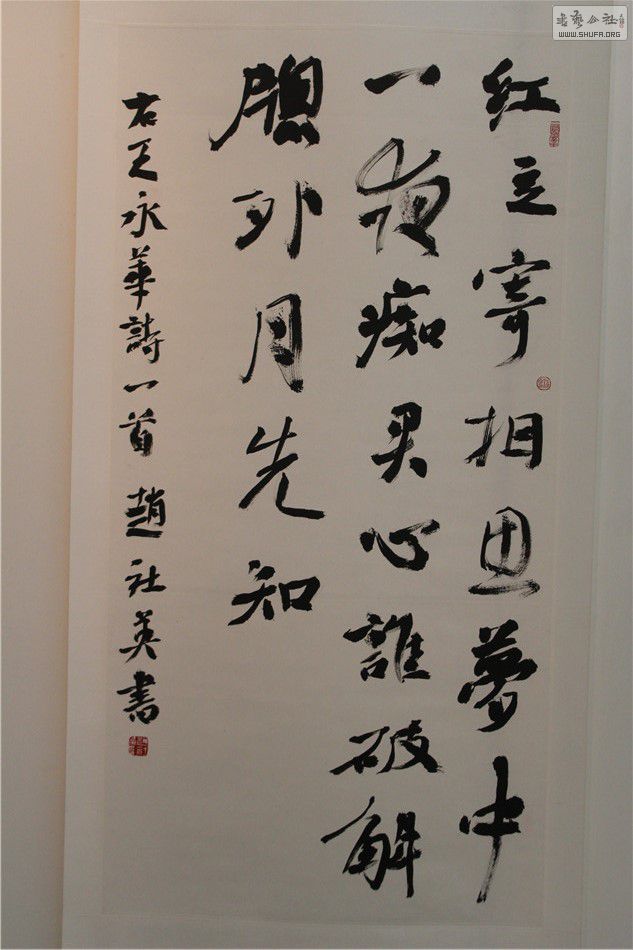 红豆寄相思夢中
一夜痴君心誰破解
牕外月先知
右王永華詩一首 趙社英書
书艺公社
WWW.SHUFA.ORG